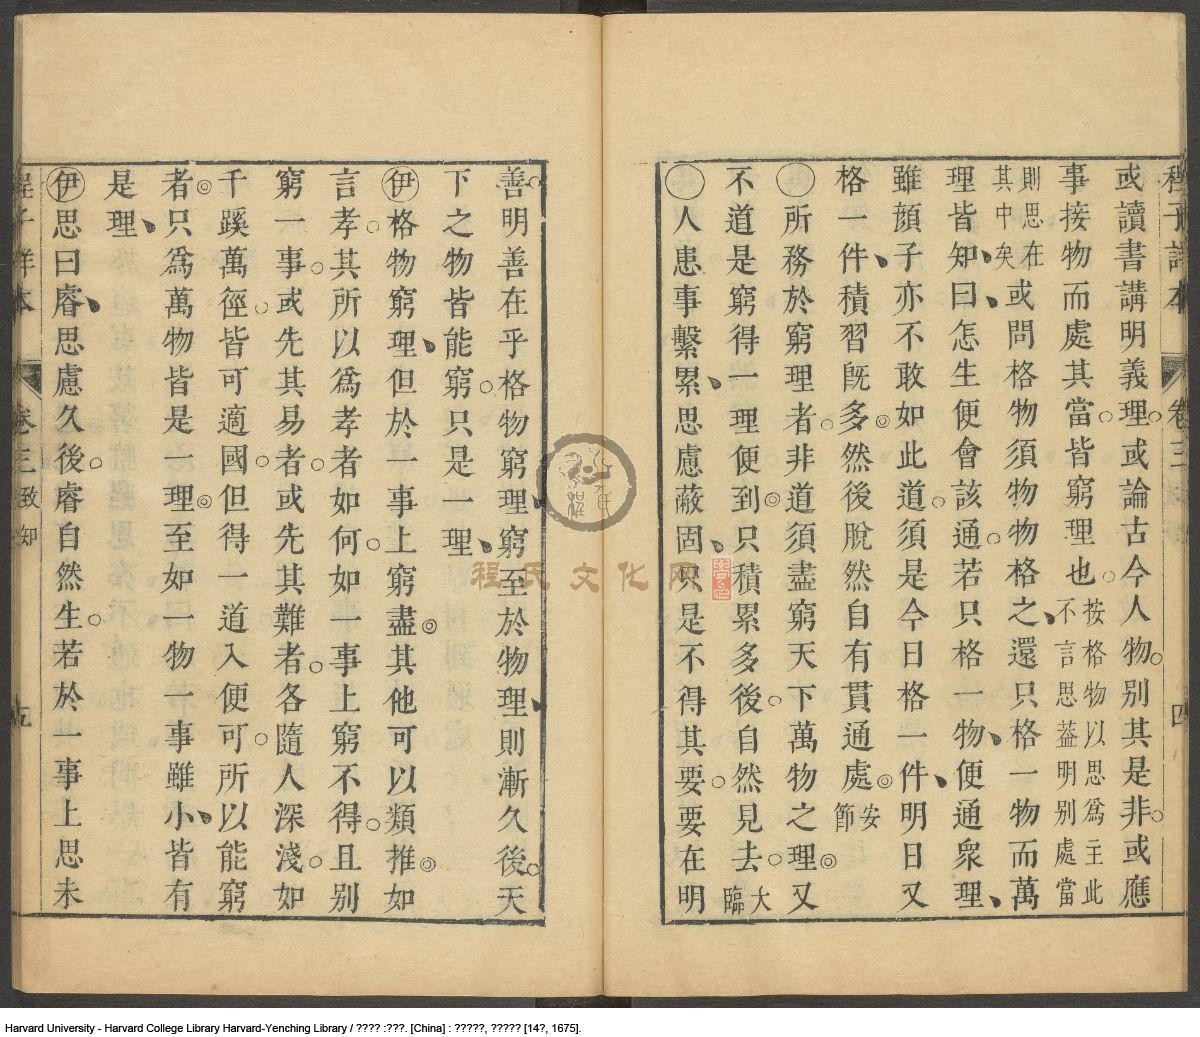 程子詳本 卷三 四
或讀書講明義理或論古今人物別其是非或應
事接物而處其當皆窮理也 按格物以思爲主此不言思蓋明别處當
則思在其中矣 或問格物須物物格之還只格一物而萬
理皆知曰怎生便會該通若只格一物便通衆理
雖顏子亦不敢如此道須是今日格一件明日又
格一件積習旣多然後脫然自有貫通處 安節
○所務於窮理者非道須盡窮天下萬物之理又
不道是窮得一理便到只積累多後自然見去 大臨
○人患事繫累思慮蔽固只是不得其要要在明
善明善在乎格物窮理窮至於物理則漸久後天
下之物皆能窮只是一理
伊格物窮理但於一事上窮盡其他可以類推如
言孝其所以爲孝者如何如一事上窮不得且别
窮一事或先其易者或先其難者各隨人深淺如
千蹊萬徑皆可適國但得一道入便可所以能窮
者只爲萬物皆是一理至如一物一事雖小皆有
是理
伊思曰睿思慮久後睿自然生若於一事上思未
程子詳本 卷三 致知 五
程氏文化网
Harvard University - Harvard College Library Harvard-Yenching Library / ???? :???. [China] : ?????, ????? [14?, 1675].